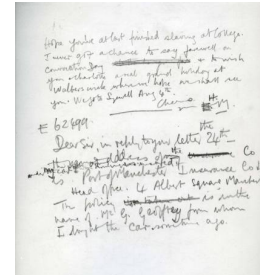 Hope you've at last finished slaving at College.
I never got a chance to say farewell on
Convocation Day & to wish
you & Charlotte a real good holiday at
Walberswick where I hope we shall see
you. We go to Syzewell Aug 4th.
Cheerio
E 62699.
Dear Sir, in reply to your letter the 24th
the address of the Co
is Port of Manchester Insurance Co
Head Office. 4 Albert Square Manchester
The policy is in the
name of Mr G. Geoffrey from whom
I bought the car months ago.